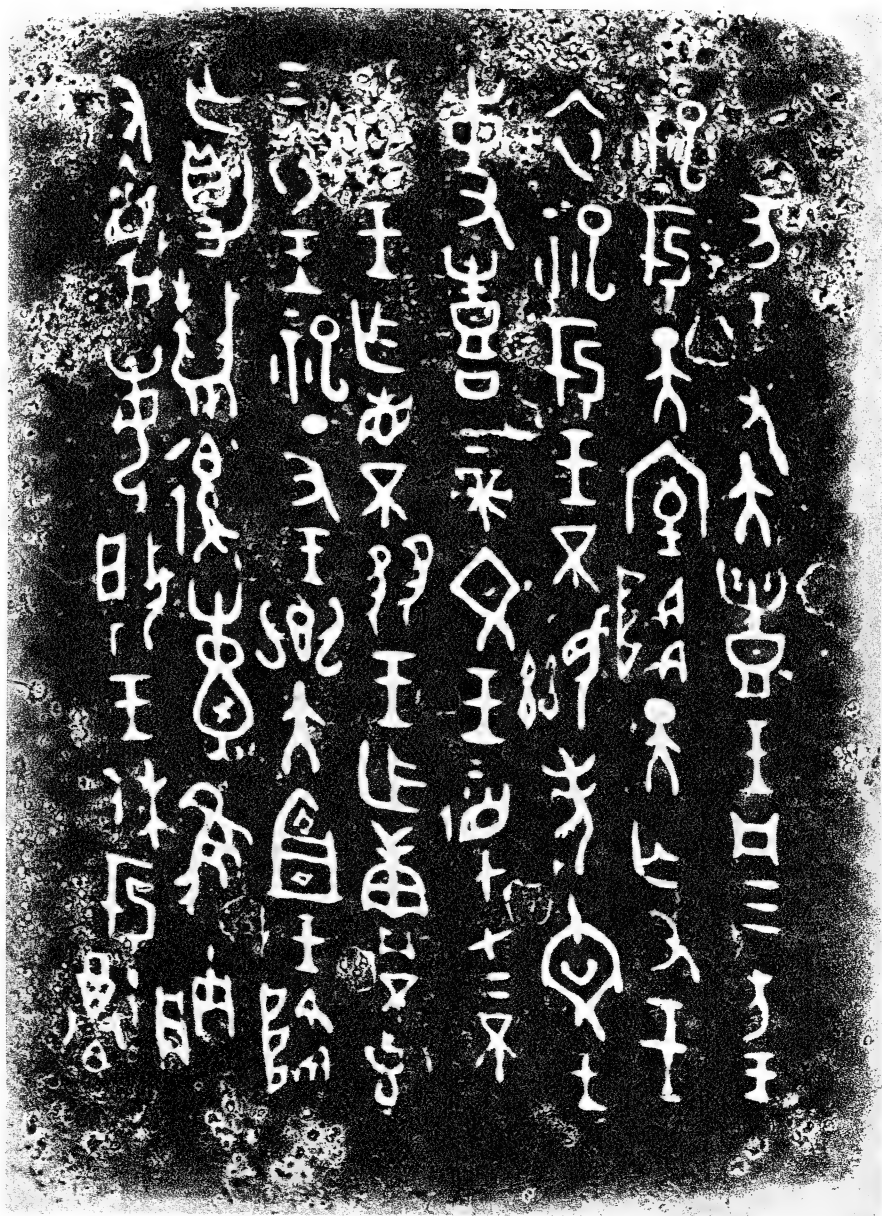 亥王又大豐王凡三方王
祀于天室降天亡又王
衣祀于王不顯考文王
事喜上帝文王監才上不
顯王乍省不王乍賡不克
三衣王祀丁丑王鄉大宜王降
亡爵復隹朕
又每揚王休于尊